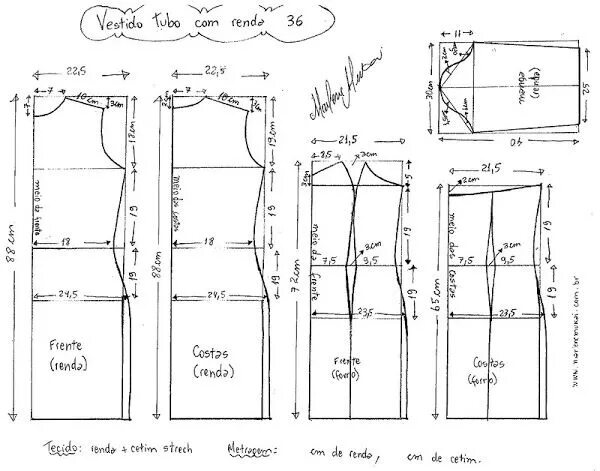 Vestido tubo com renda 36
22,5
7
10cm
3cm
7
19cm
19
19
meio da frente
88cm
18
24,5
Frente
(renda)
22,5
7
10cm
3cm
2cm
19cm
19
19
meio das costas
88cm
18
24,5
Costas
(renda)
Marlene Mukai
21,5
8,5
2cm
3cm
5
19
19
72cm
meio da frente
3cm
7,5
9,5
23,5
Frente
(forro)
11
30cm
25
40
manga
(renda)
21,5
2cm
19
19
65cm
meio das costas
3cm
7,5
9,5
23,5
Costas
(forro)
www.marlenemukai.com.br
Tecido: renda + cetim strech Metragem: cm de renda, cm de cetim.